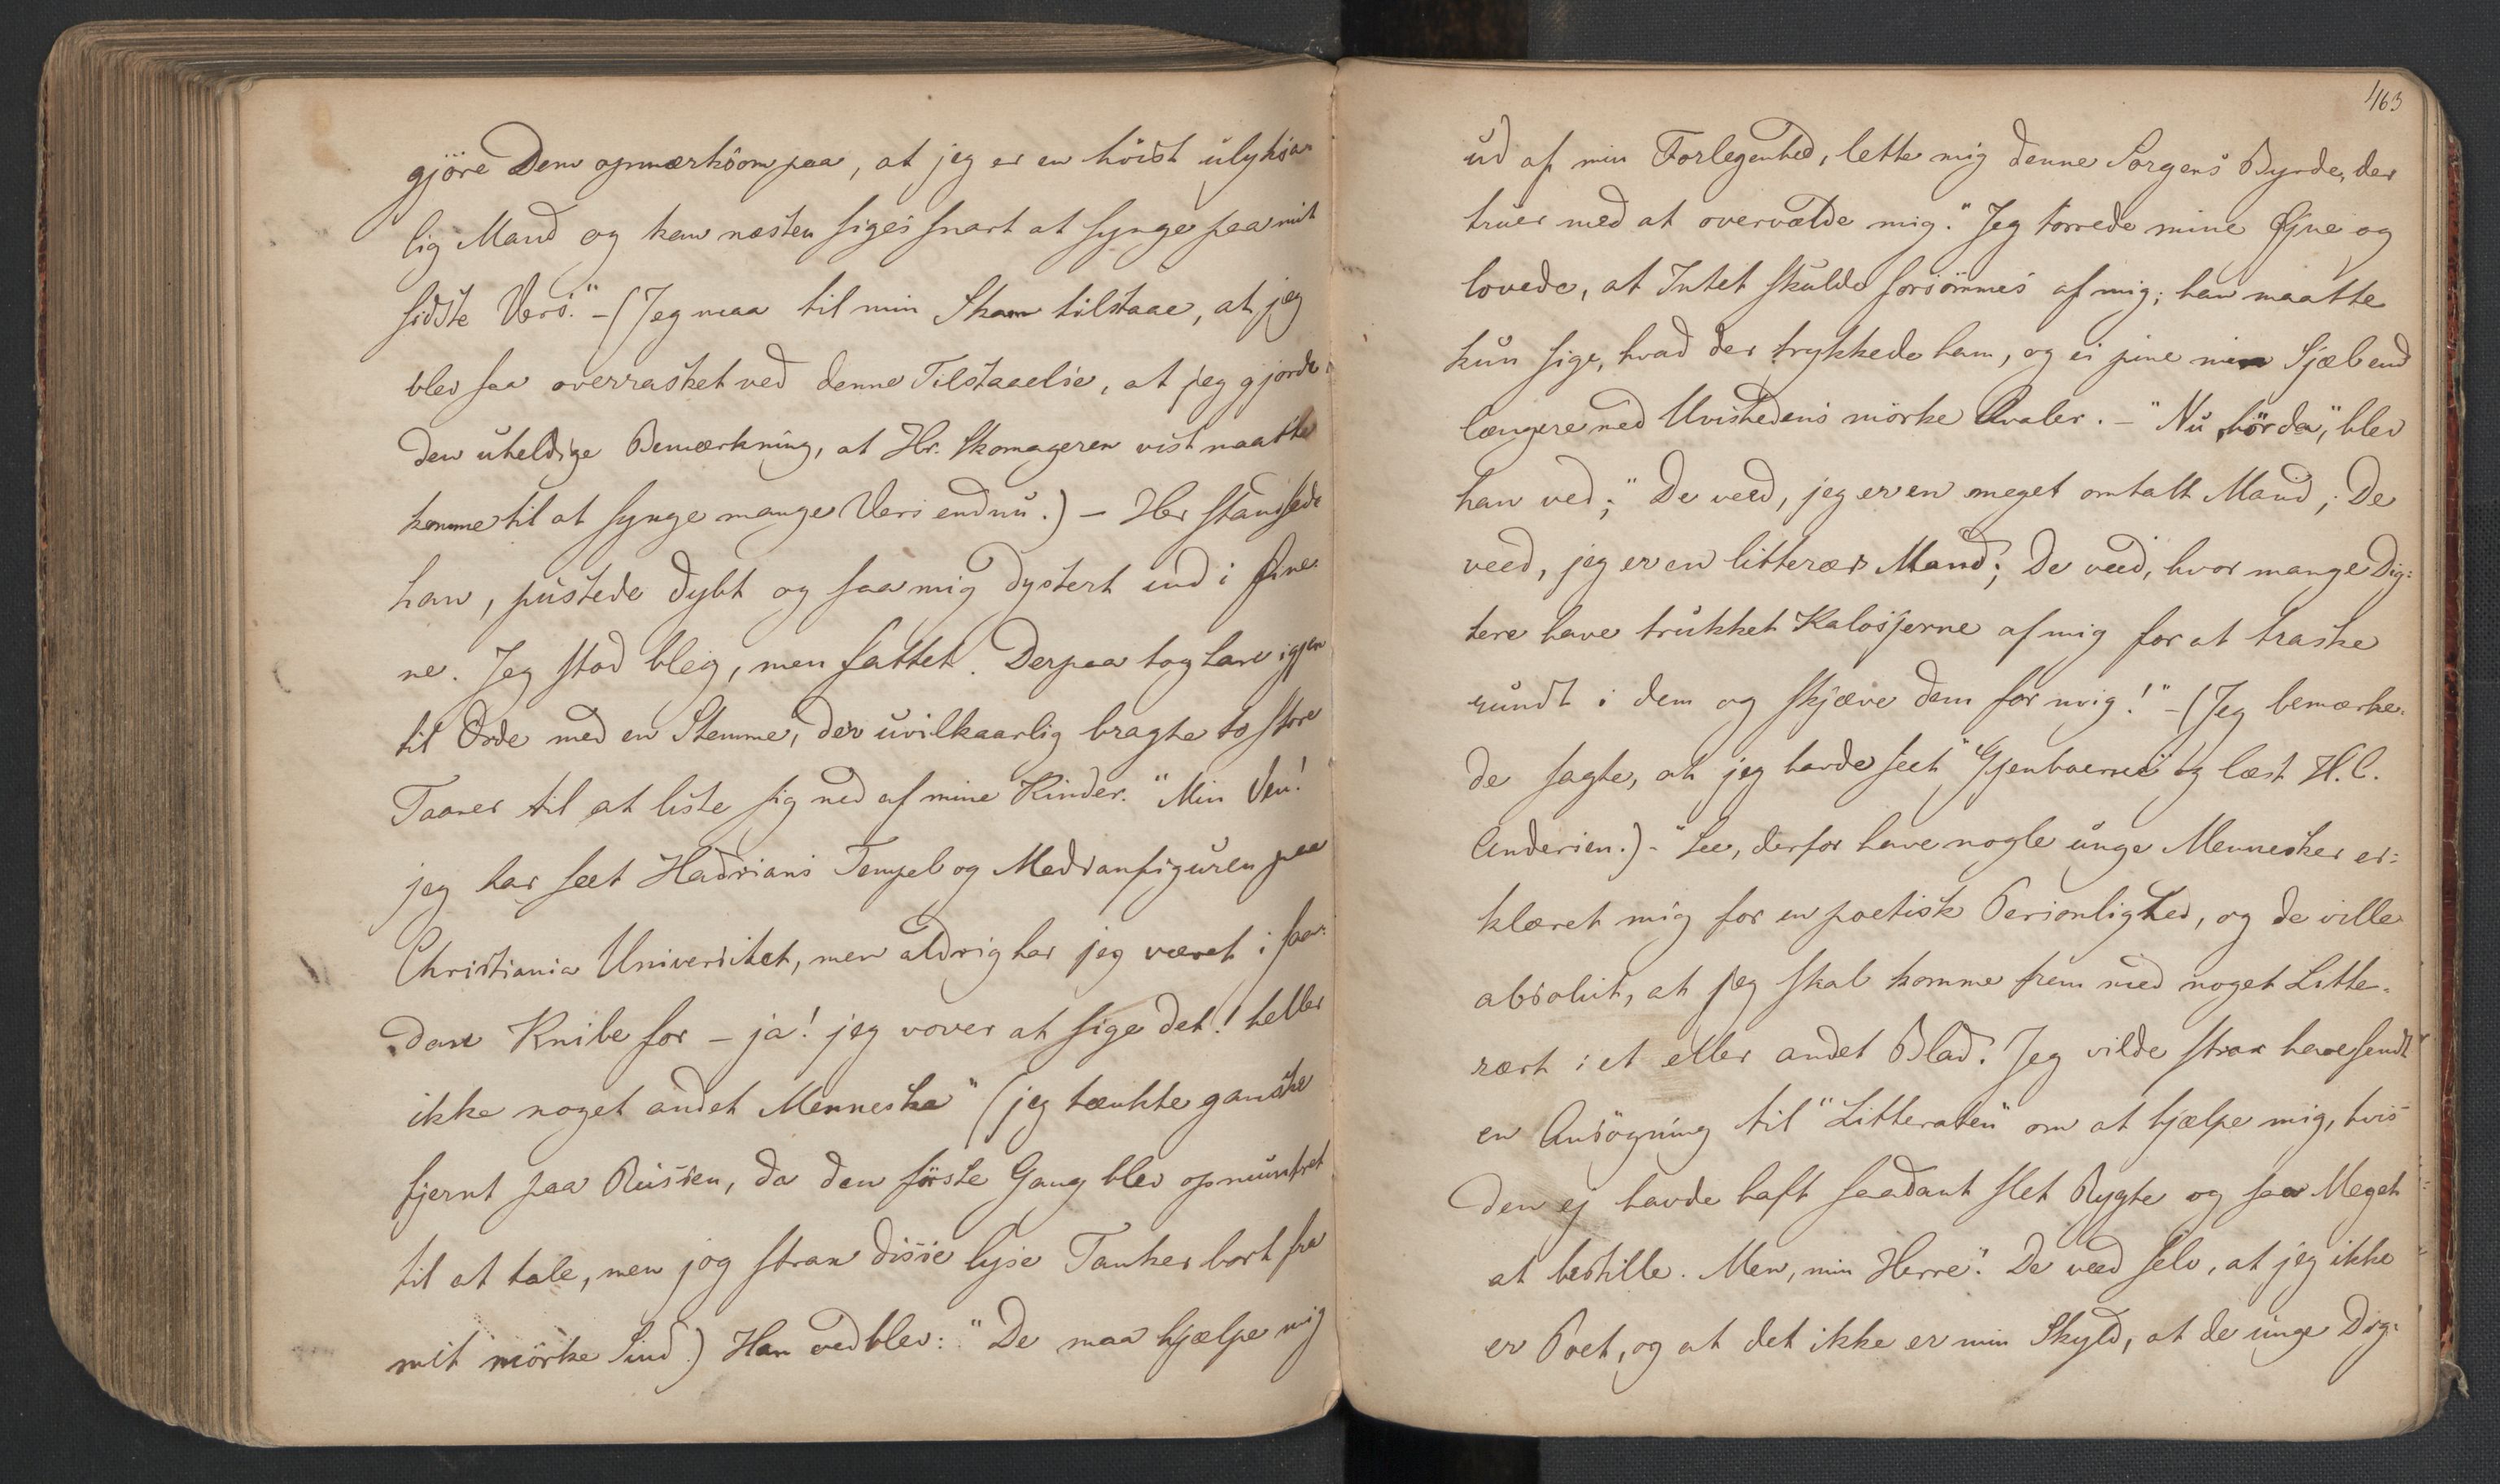 gjöre Dem opmærksom paa, at jeg er en höist ulyksa-
lig Mand og kan næsten siges snart at synge paa mit
sidste Vers." - (Jeg maa til min Skam tilstaae, at jeg
blev saa overrasket ved denne Tilstaaelse, at jeg gjorde
den uheldige Bemærkning, at Hr. Skomageren vist maatte
komme til at synge mange Vers endnu.) - Her standsede
han, pustede dybt og saa mig dystert ind i Öine-
ne. Jeg stod bleg, men fattet. Derpaa tog han igjen
til Orde med en Stemme, der uvilkaarlig bragte to store
Taarer til at liste sig ned af mine Kinder. "Min Ven!
jeg har seet Hadrians Tempel og Medianfiguren paa
Christiania Universitet, men aldrig har jeg været i saa-
dan Knibe for - ja! jeg vover at sige det! heller
ikke noget andet Menneske" (jeg tænkte ganske
fjernt paa Russen, da den förste Gang blev opmuntret
til at tale, men jog strax disse lyse Tanker bort fra
mit mörke Sind.) Han vedblev: "De maa hjælpe mig
463
ud af min Forlegenhed, lette mig denne Sorgens Byrde, der
truer med at overvælde mig." Jeg törrede mine Øjne og
lovede, at Intet skulde forsömmes af mig; han maatte
kun sige, hvad der trykkede ham, og ei pine min Sjæl end
længere med Uvishedens mörke Qvaler. - "Nu hör da", blev
han ved; "De veed, jeg er en meget omtalt Mand; De
veed, jeg er en litterær Mand; De veed, hvor mange Dig-
tere have trukket Kalosjerne af mig for at traske
rundt i dem og skjæve dem for mig!" - (Jeg bemærke-
de sagte, at jeg havde seet "Gjenboerne" og læst H. C.
Andersen.) - "See, derfor have nogle unge Mennesker er-
klæret mig for en poetisk Personlighed, og de ville
absolut, at jeg skal komme frem med noget Litte-
rært i et eller andet Blad. Jeg vilde strax have sendt
en Ansögning til "Litteraten" om at hjælpe mig, hvis
den ej havde haft saadant slet Rygte og saa Meget
at bestille. Men, min Herre! De veed selv, at jeg ikke
er Poet, og at det ikke er min Skyld, at de unge Dig-